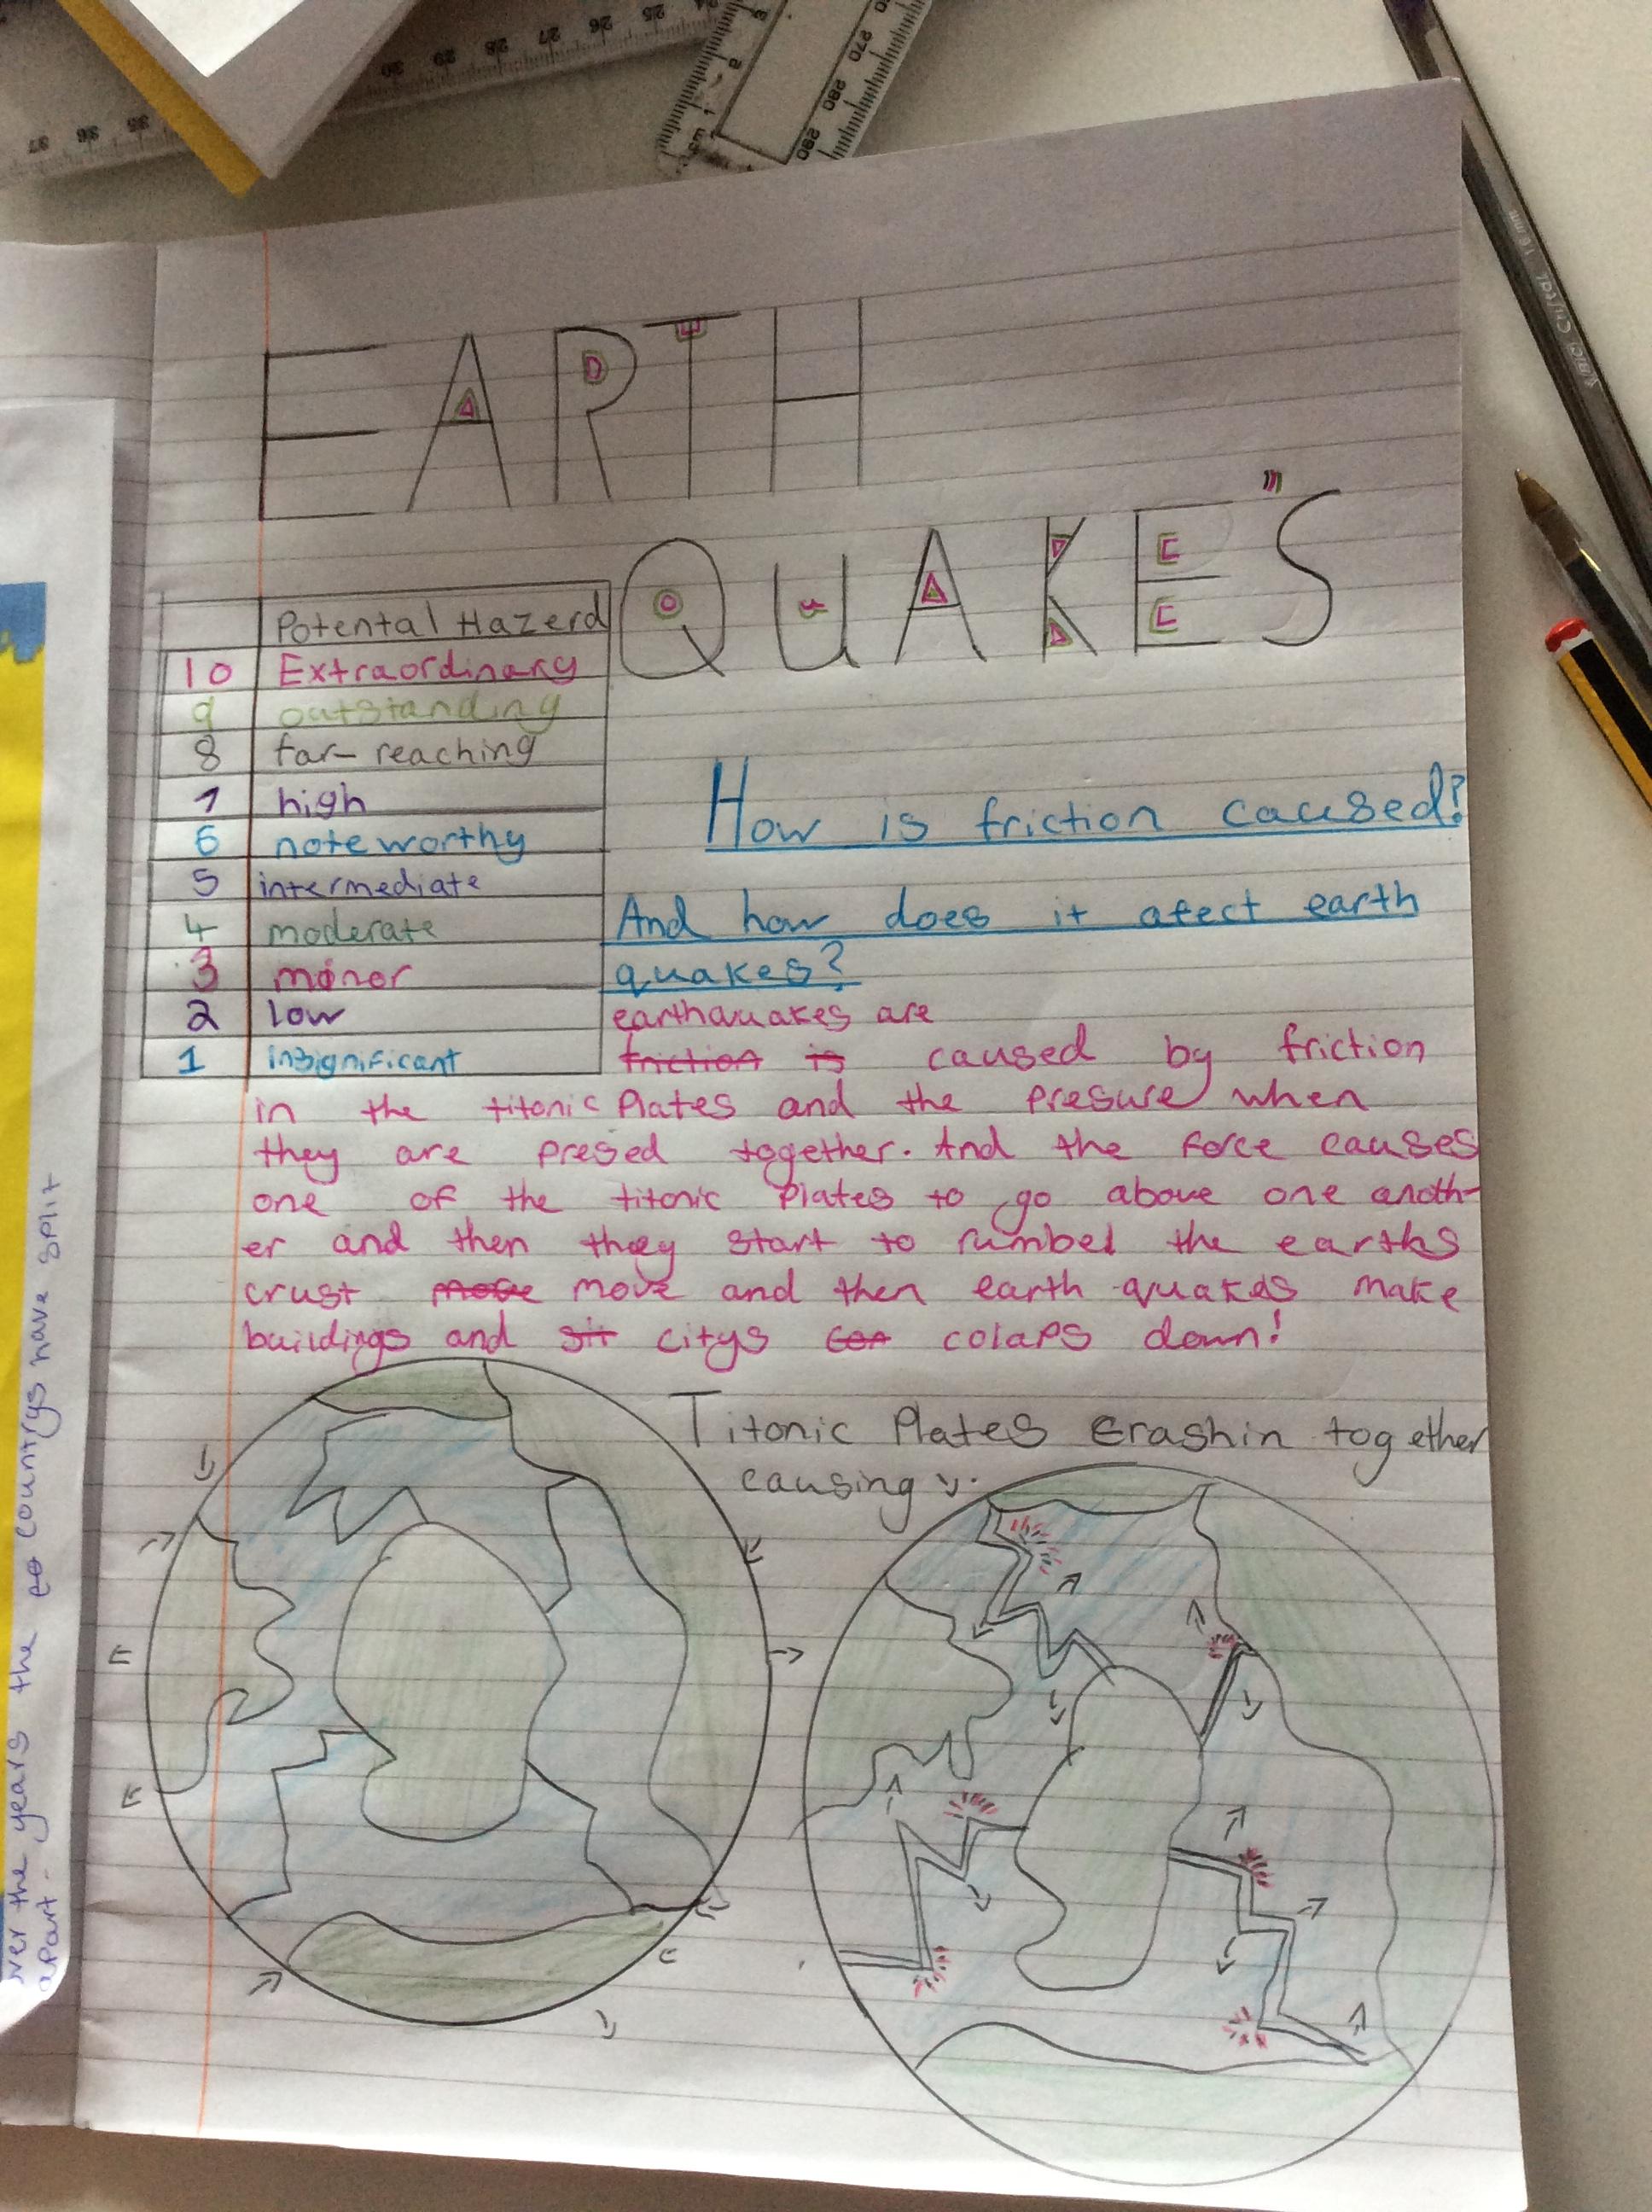 EARTH
QUAKE'S
Potental Hazerd
10 Extraordinary
9 outstanding
8 far-reaching
7 high
6 noteworthy
5 intermediate
4 moderate
3 minor
2 low
1 insignificant
How is friction caused?
And how does it afect earth
quakes?
earthquakes are
friction is caused by friction
in the titonic Plates and the presure when
they are presed together. And the force causes
one of the titonic plates to go above one anoth-
er and then they start to rumbel the earths
crust move move and then earth quakes make
buildings and sit citys con colaps down!
Titonic Plates crashin together
causing
over the years the to countrys have split
apart.